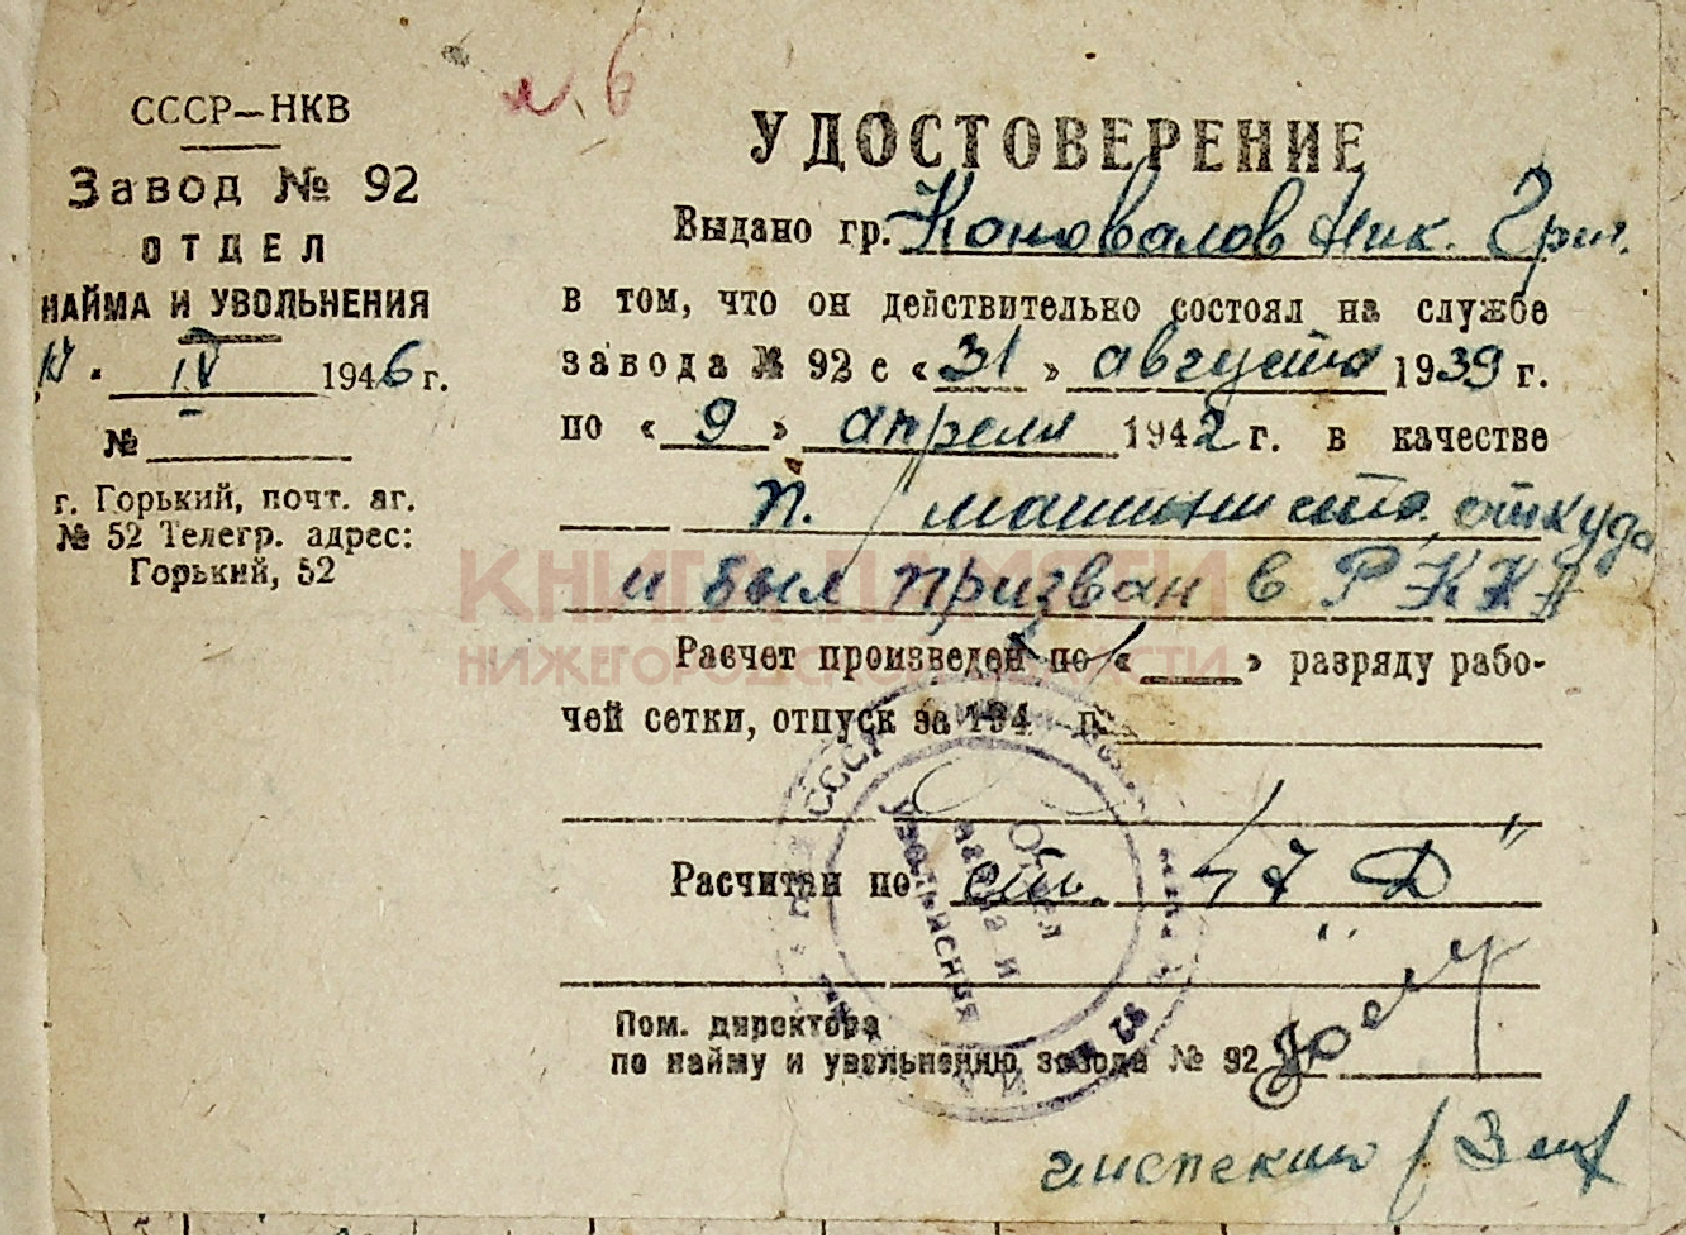 л. 6
СССР—НКВ
Завод № 92
ОТДЕЛ
НАЙМА И УВОЛЬНЕНИЯ
17. IV 1946 г.
№
г. Горький, почт. яг.
№ 52 Телегр. адрес:
Горький, 52
УДОСТОВЕРЕНИЕ
Выдано гр. Коновалов Ник. Григ.
в том, что он действительно состоял на службе
завода № 92 с «31» августа 1939 г.
по «9» апреля 1942 г. в качестве
п. машиниста, откуда
и был призван в РККА
КНИГА ПАМЯТИ
НИЖЕГОРОДСКОЙ ОБЛАСТИ
Расчет произведен по « » разряду рабо-
чей сетки, отпуск за 194 г.
Расчитан по ст. 47 Д"
Пом. директора
по найму и увольнению завода № 92
СССР
Отдел
найма и
увольнения